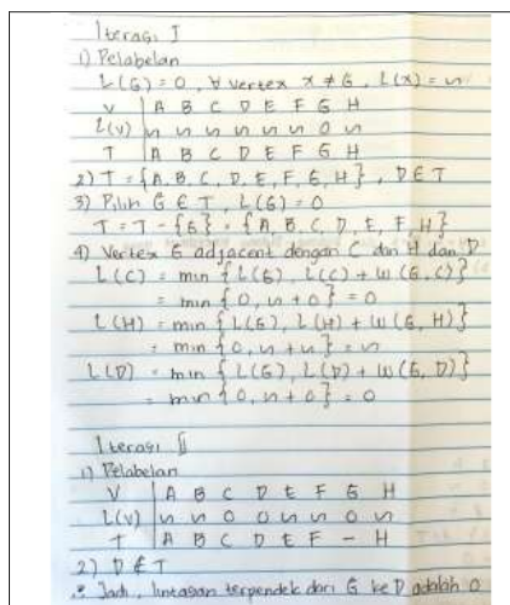 Iterasi I
1) Pelabelan
L(G) = 0, ∀ vertex x ≠ G, L(x) = ∾
V | A B C D E F G H
L(v) | ∾ ∾ ∾ ∾ ∾ ∾ 0 ∾
T | A B C D E F G H
2) T = {A, B, C, D, E, F, G, H}, D ∈ T
3) Pilih G ∈ T, L(G) = 0
T = T - {G} = {A, B, C, D, E, F, H}
4) Vertex G adjacent dengan C dan H dan D
L(C) = min {L(G), L(C) + W(G, C)}
= min {0, ∾ + 0} = 0
L(H) = min {L(G), L(H) + W(G, H)}
= min {0, ∾ + ∾} = ∾
L(D) = min {L(G), L(D) + W(G, D)}
= min {0, ∾ + 0} = 0
Iterasi II
1) Pelabelan
V | A B C D E F G H
L(v) | ∾ ∾ 0 0 ∾ ∾ 0 ∾
T | A B C D E F - H
2) D ∉ T
∴ Jadi, lintasan terpendek dari G ke D adalah 0